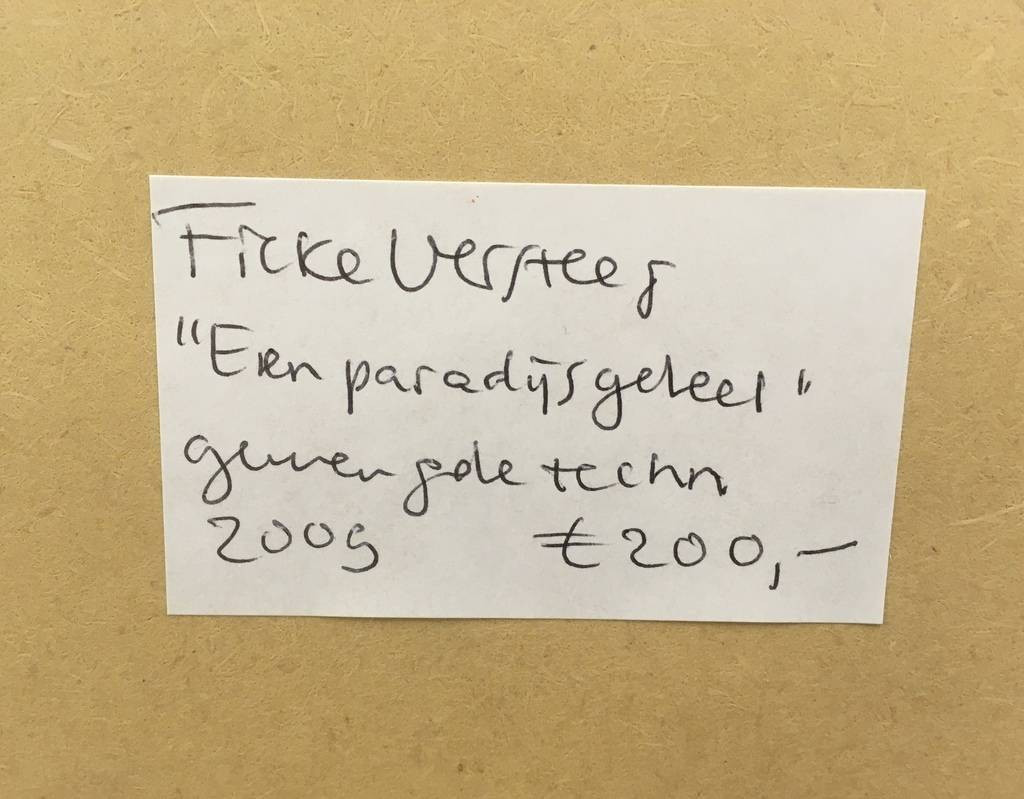 Ficke Versteeg
"Een paradijsgeheel"
gemengde techn
2009 € 200,-